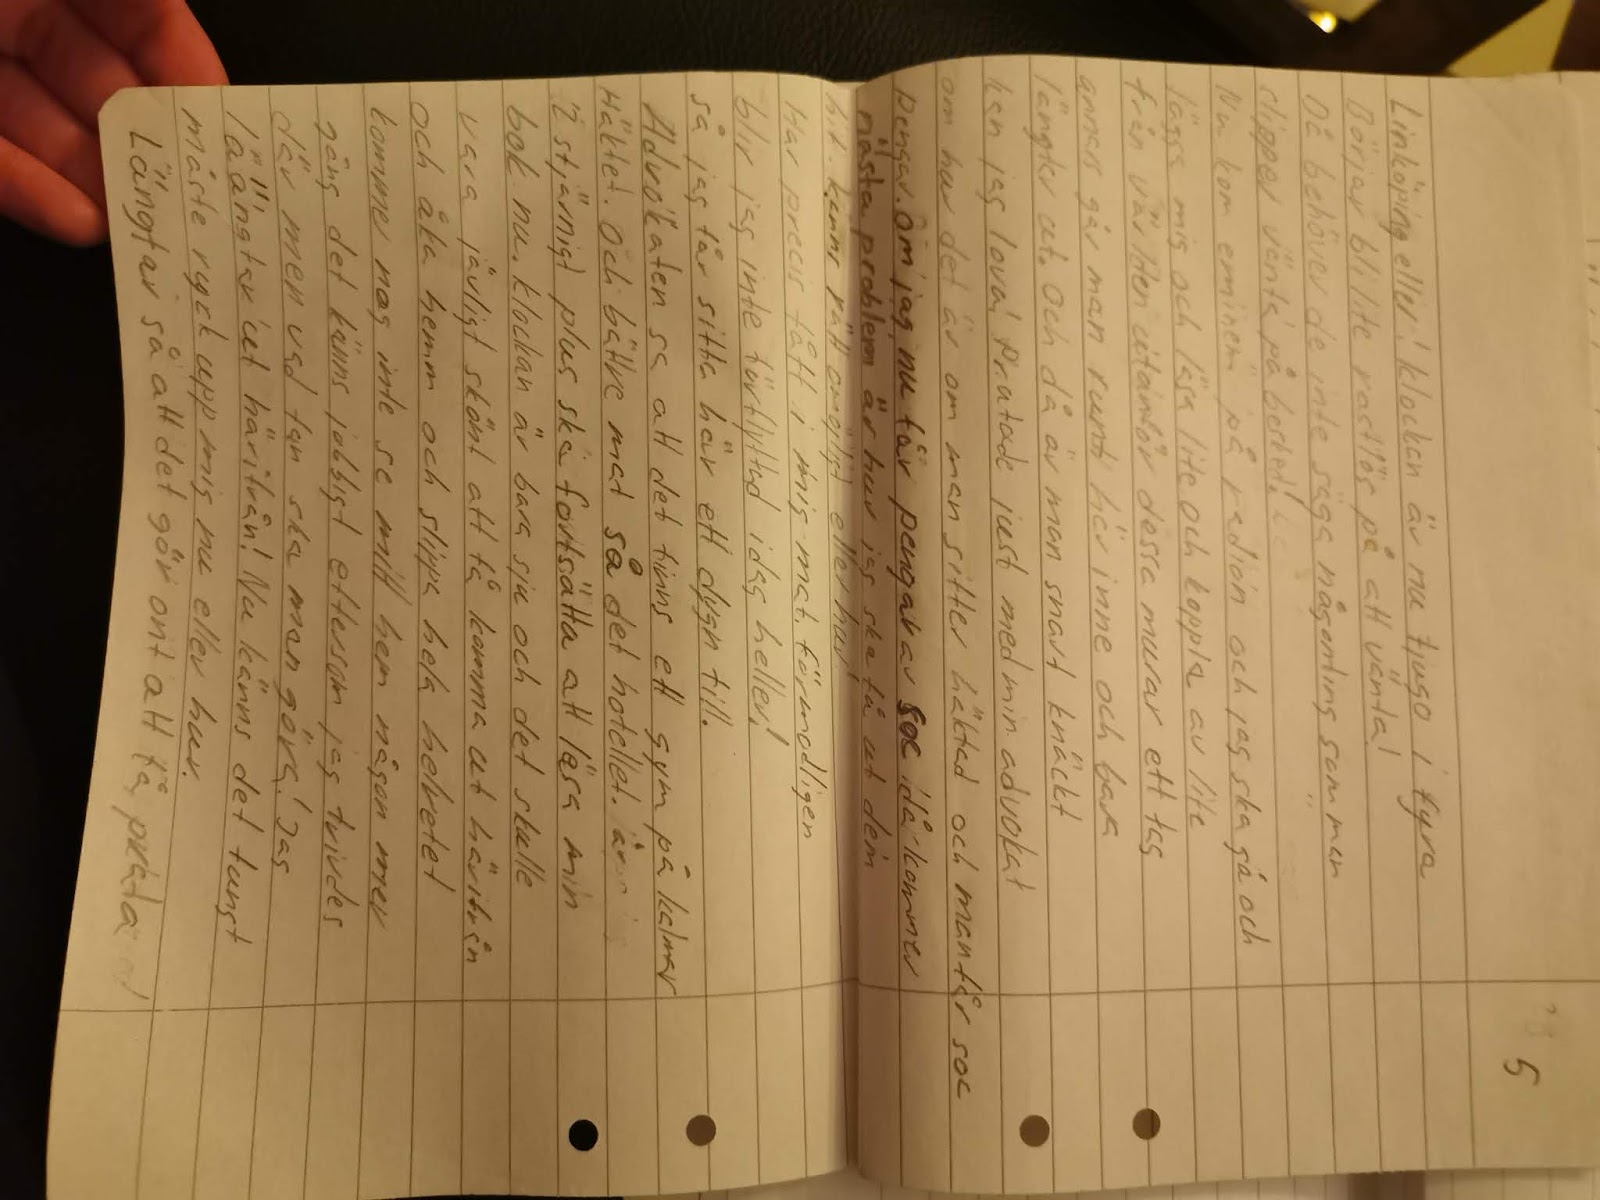 5
Linköping eller! klockan är nu tjugo i fyra
Börjar bli lite rastlös på att vänta!
Då behöver de inte säga någenting som man
slipper vänta på besked!
Nu kom eminem på radion och jag ska gå och
lägga mig och läsa lite och koppla av lite
från världen utanför dessa murar ett tag
annars går man runt här inne och bara
längter ut. Och då är man snart knäckt
kan jag lova! Pratade just med min advokat
om hur det är om man sitter häktad och man får soc
pengar. Om jag nu får pengar av soc idå-kommer
nästa problem är hur jag ska få ut dem
hit. känns rätt omöjligt eller hur!
Har precis fått i mig mat, förmodligen
blir jag inte förflyttad idag heller!
så jag får sitta här ett dygn till.
Advokaten sa att det finns ett gym på kalmar
Häktet. Och bättre mat så det hotellet. är
2 stjärnigt plus ska fortsätta att läsa min
bok nu. klockan är bara sju och det skulle
vara jävligt skönt att få komma ut härifrån
och åka hemm och slippa hela helvetet
kommer nog inte se mitt hem någon mer
gång det känns jobbigt eftersom jag trivdes
där men vad fan ska man göra! Jag
läängtar ut härifrån! Nu känns det tungt
måste ryck upp mig nu eller hur.
Längtar så att det gör ont att få prata